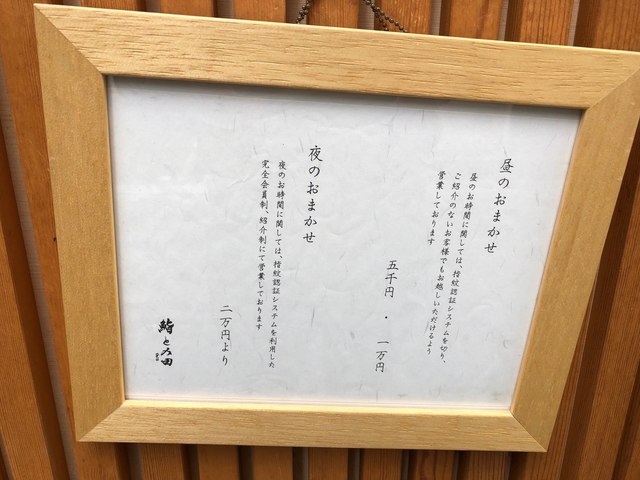 昼のおまかせ
昼のお時間に関しては、指紋認証システムを切り、
ご紹介のないお客様でもお越しいただけるよう
営業しております
五千円 ・ 一万円
夜のおまかせ
夜のお時間に関しては、指紋認証システムを利用した
完全会員制、紹介制にて営業しております
二万円より
鮨とみ田